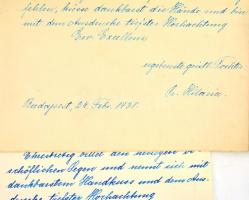 fehlen, küsse dankbarst die Hände und bin
mit dem Ausdrucke tiefster Hochachtung
Euer Exzellenz
Tochter
Budapest, 24. Febr. 1931.
Ehrerbietig bittet den
schöflichen Segen und nennt sich mit
dankbarstem Handkuss und dem Aus-
drucke tiefster Hochachtung